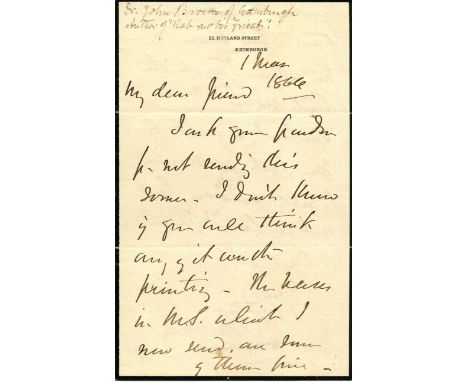 Dr. John Brown of Edinburgh
Author of "Rab and his Friends".
23, RUTLAND STREET
EDINBURGH
1 Mar
1866
My dear friend
I ask your pardon
for not sending this
sooner. I don't know
if you will think
any of it worth
printing - The verses
in M.S. which I
now send, are some
of them fine -